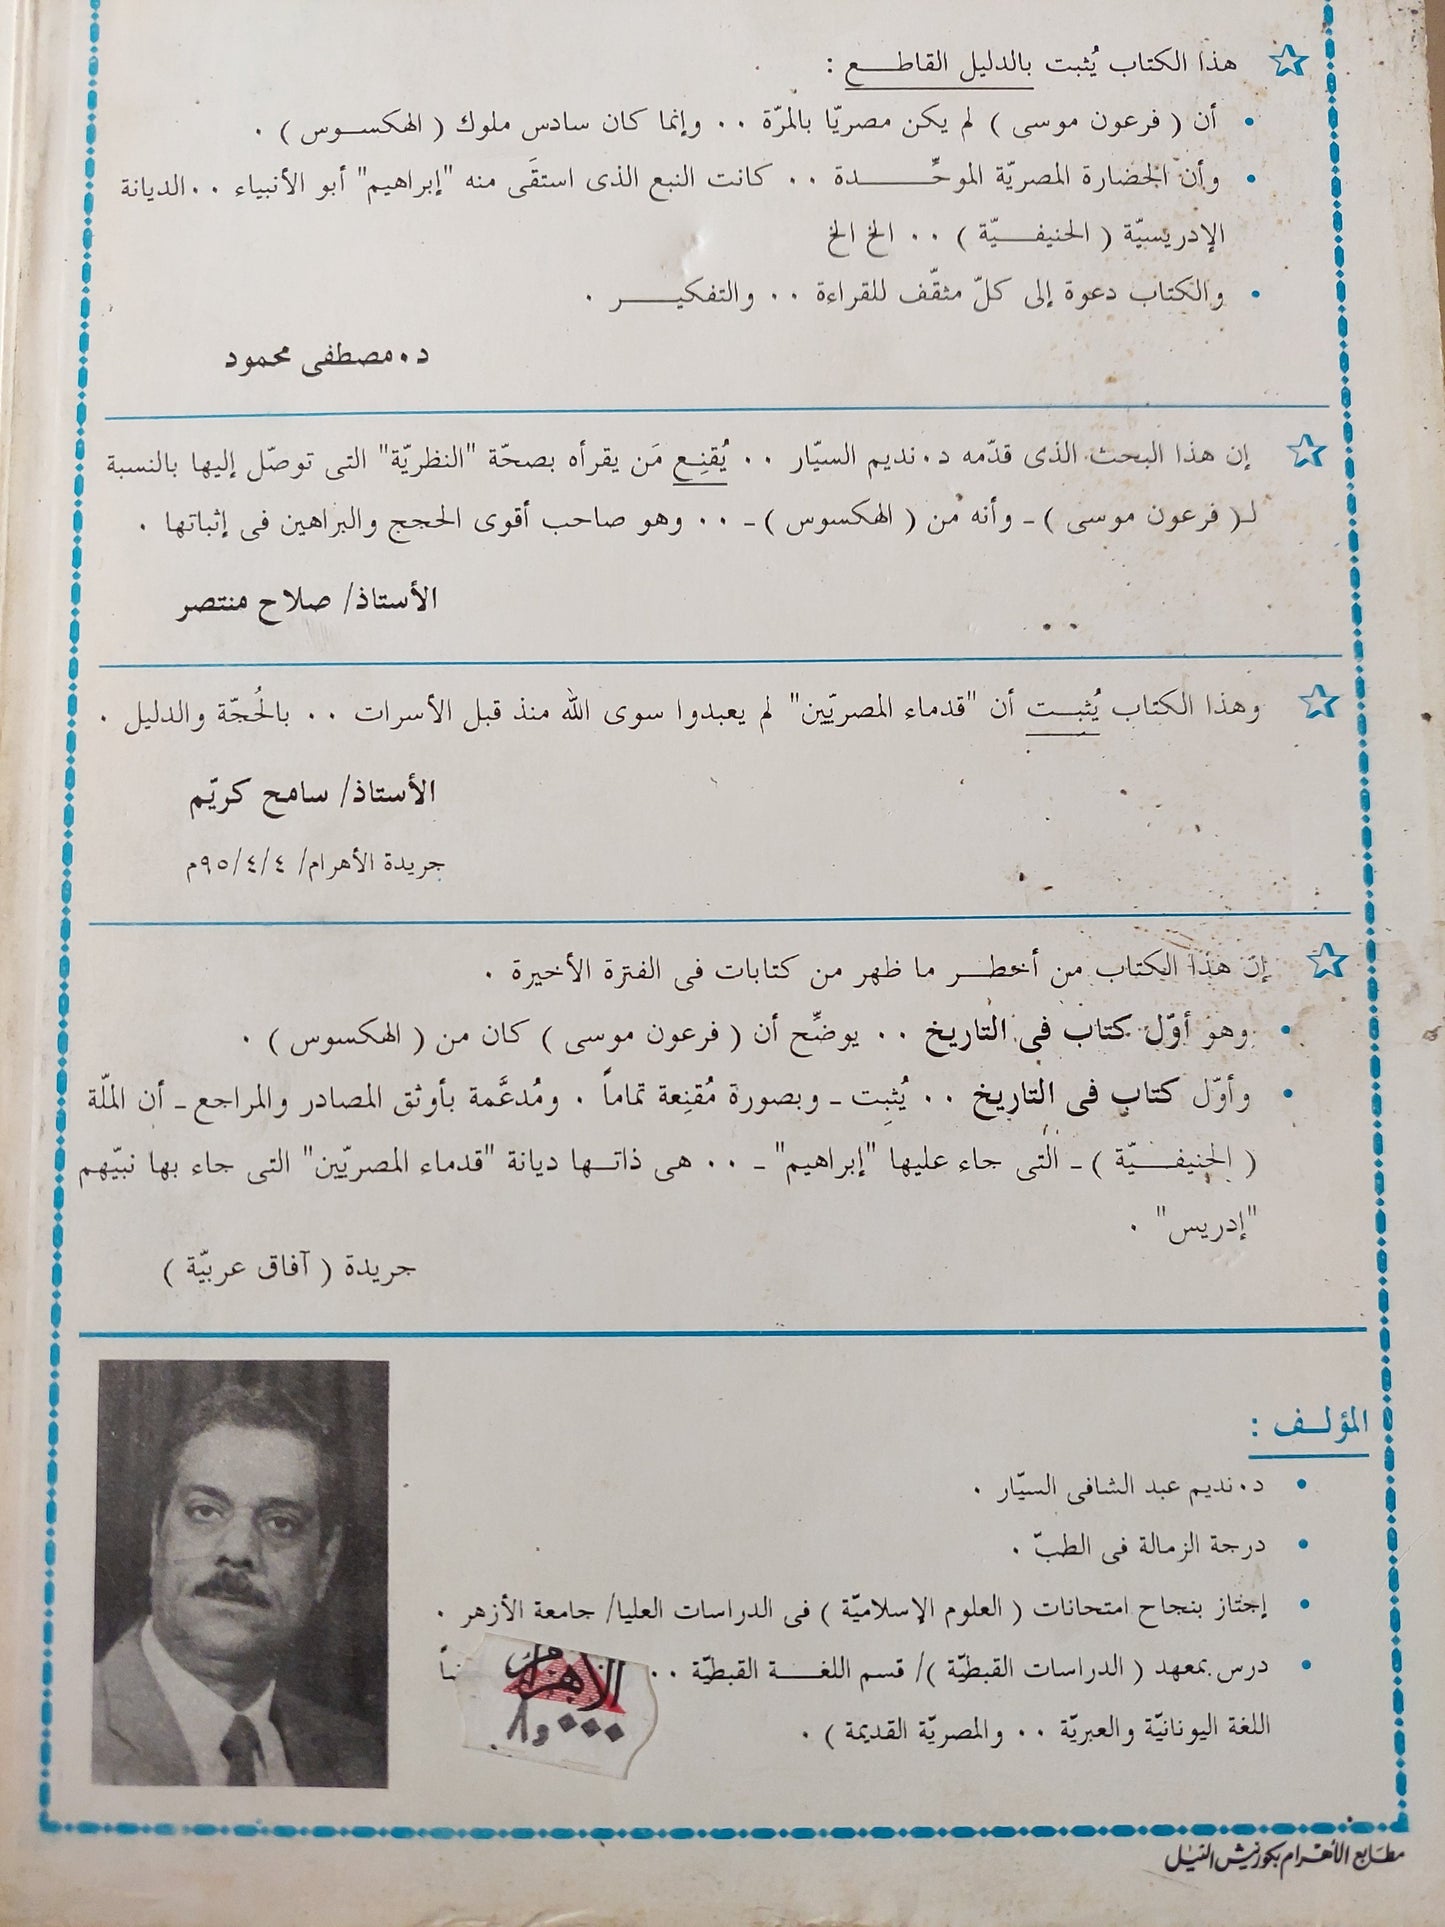 هذا الكتاب يُثبت بالدليل القاطــــع :
أن ( فرعون موسى ) لم يكن مصريّا بالمرّة ٠٠ وإنما كان سادس ملوك ( الهكســوس ) ٠
وأن الحضارة المصريّة الموحِّـــــــدة ٠٠ كانت النبع الذى استقَى منه "إبراهيم" أبو الأنبياء ٠٠ الديانة
الإدريسيّة ( الحنيفـــيّة ) ٠٠ الخ الخ
والكتاب دعوة إلى كلّ مثقّف للقراءة ٠٠ والتفكيـــــر ٠
د ٠ مصطفى محمود
إن هذا البحث الذى قدّمه د ٠ نديم السيّار ٠٠ يُقنِـع مَن يقرأه بصحّة "النظريّة" التى توصّل إليها بالنسبة
لـ( فرعون موسى )ـ وأنه من ( الهكسوس )ـ ٠٠ وهو صاحب أقوى الحجج والبراهين فى إثباتها ٠
الأستاذ/ صلاح منتصر
وهذا الكتاب يُثبـــت أن "قدماء المصريّين" لم يعبدوا سوى الله منذ قبل الأسرات ٠٠ بالحُجّة والدليل ٠
الأستاذ/ سامح كريّم
جريدة الأهرام/ ٩٥/٤/٤م
إن هذا الكتاب من أخطـــر ما ظهر من كتابات فى الفترة الأخيرة ٠
وهو أوّل كتاب فى التاريخ ٠٠ يوضِّح أن ( فرعون موسى ) كان من ( الهكسوس ) ٠
وأوّل كتاب فى التاريخ ٠٠ يُثبِت ـ وبصورة مُقنِعة تماماً ٠ ومُدعَّمة بأوثق المصادر والمراجع ـ أن الملّة
( الحنيفـــيّة ) ـ التى جاء عليها "إبراهيم" ـ ٠٠ هى ذاتــها ديانة "قدماء المصريّين" التى جاء بها نبيّهم
"إدريس" ٠
جريدة ( آفاق عربيّة )
المؤلــف :
د ٠ نديم عبد الشافى السيّار ٠
درجة الزمالة فى الطبّ ٠
إجتاز بنجاح امتحانات ( العلوم الإسلاميّة ) فى الدراسات العليا/ جامعة الأزهر ٠
درس بمعهد ( الدراسات القبطيّة )/ قسم اللغــــة القبطيّة ٠٠
اللغة اليونانيّة والعبريّة ٠٠ والمصريّة القديمة ) ٠
الأهرام
مطابع الأهرام بكورنيش النيل